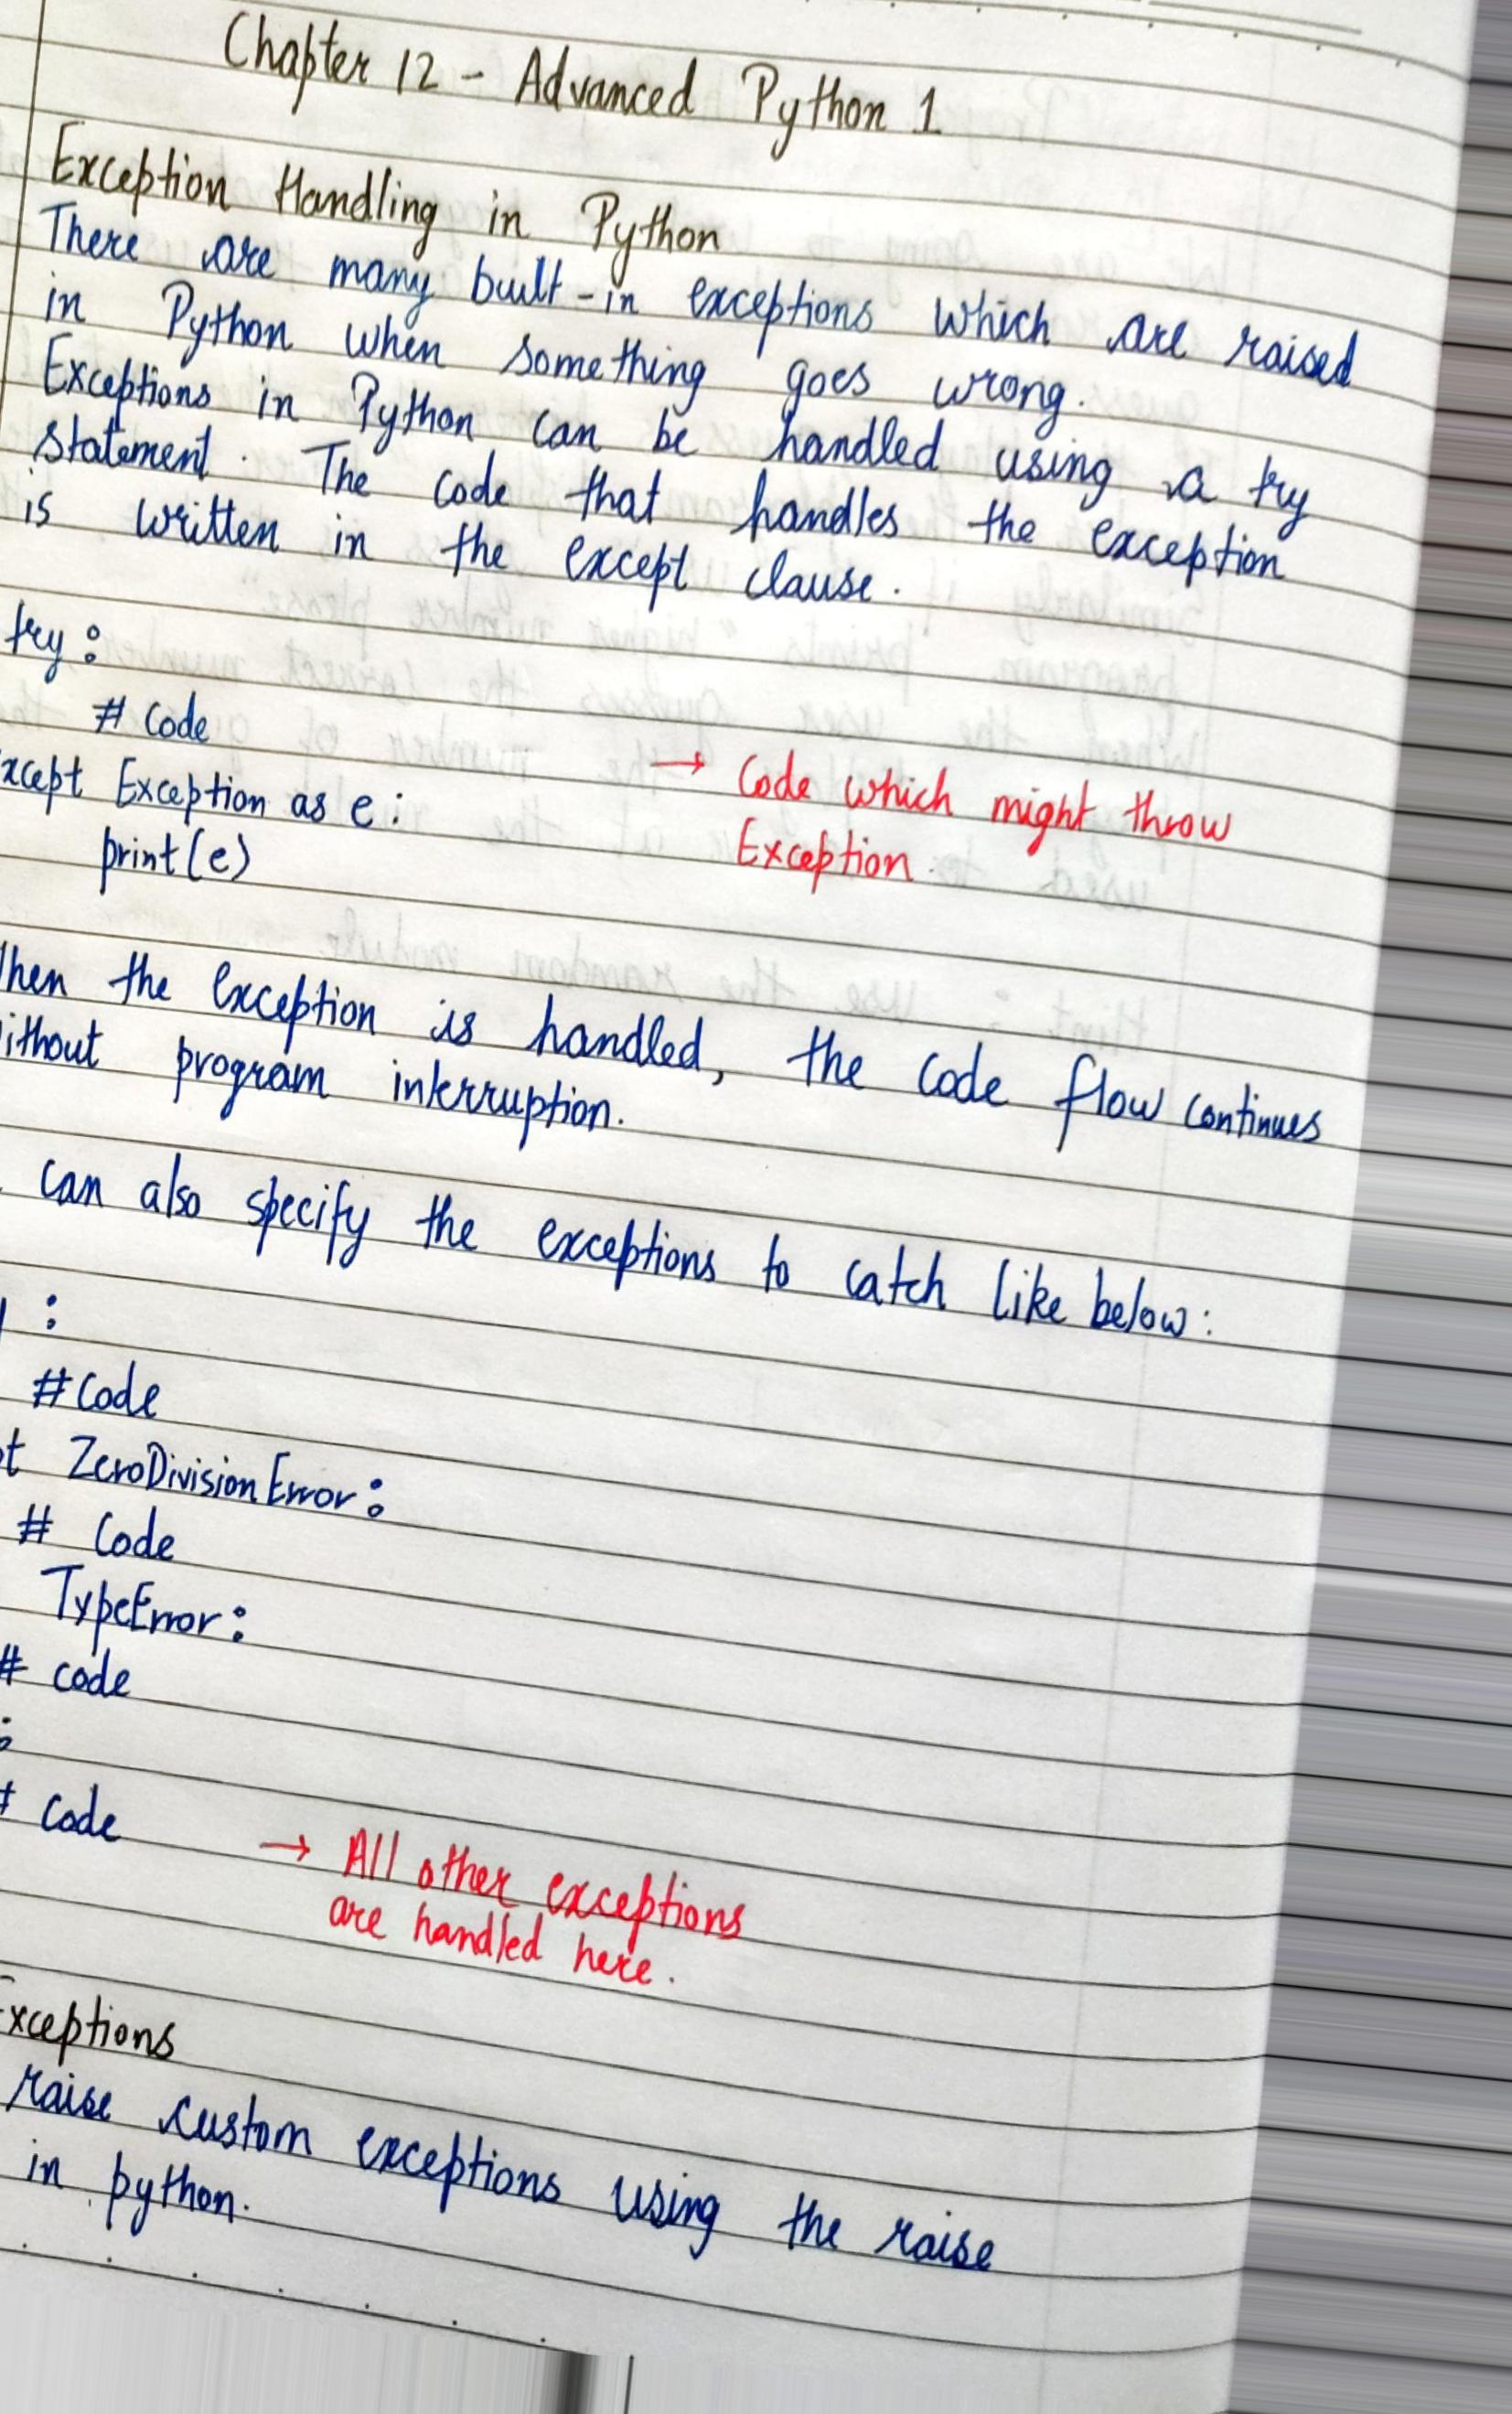 Chapter 12 - Advanced Python 1
Exception Handling in Python
There are many built-in exceptions which are raised
in Python when something goes wrong.
Exceptions in Python can be handled using a try
statement. The code that handles the exception
is written in the except clause.
try:
# Code
xcept Exception as e:
print(e)
→ Code which might throw
Exception.
hen the exception is handled, the code flow continues
ithout program interruption.
can also specify the exceptions to catch like below:
:
#Code
t ZeroDivisionError:
# Code
TypeError:
# code
:
# Code
→ All other exceptions
are handled here.
xceptions
raise custom exceptions using the raise
in python.